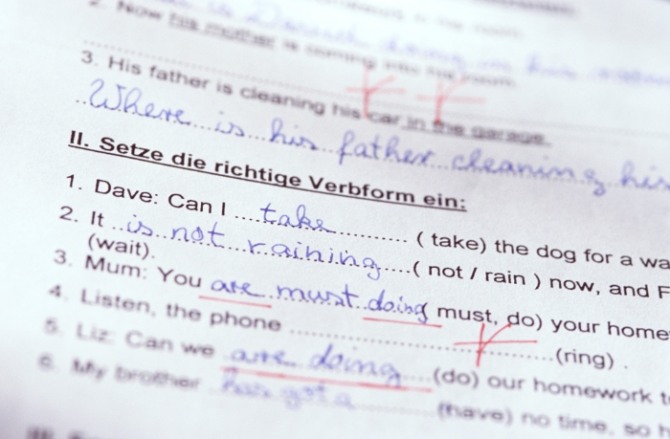 2. Now his mother is coming into his room.
3. His father is cleaning his car in the garage.
Where is his father cleaning his
II. Setze die richtige Verbform ein:
1. Dave: Can I take ( take) the dog for a wa
2. It is not raining ( not / rain ) now, and F
(wait).
3. Mum: You are must doing must, do) your home
4. Listen, the phone (ring) .
5. Liz: Can we are doing (do) our homework t
6. My brother has got a (have) no time, so h